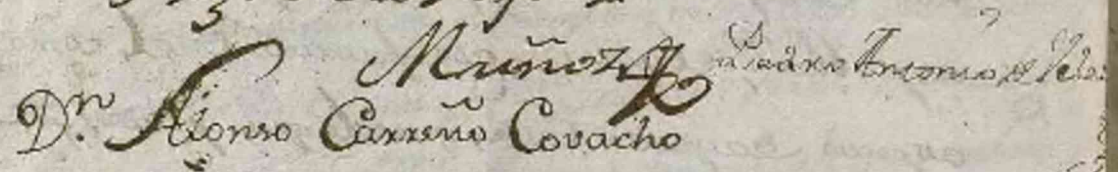 Muñoz Pedro Antonio de
Dn. Alonso Carreño Covacho